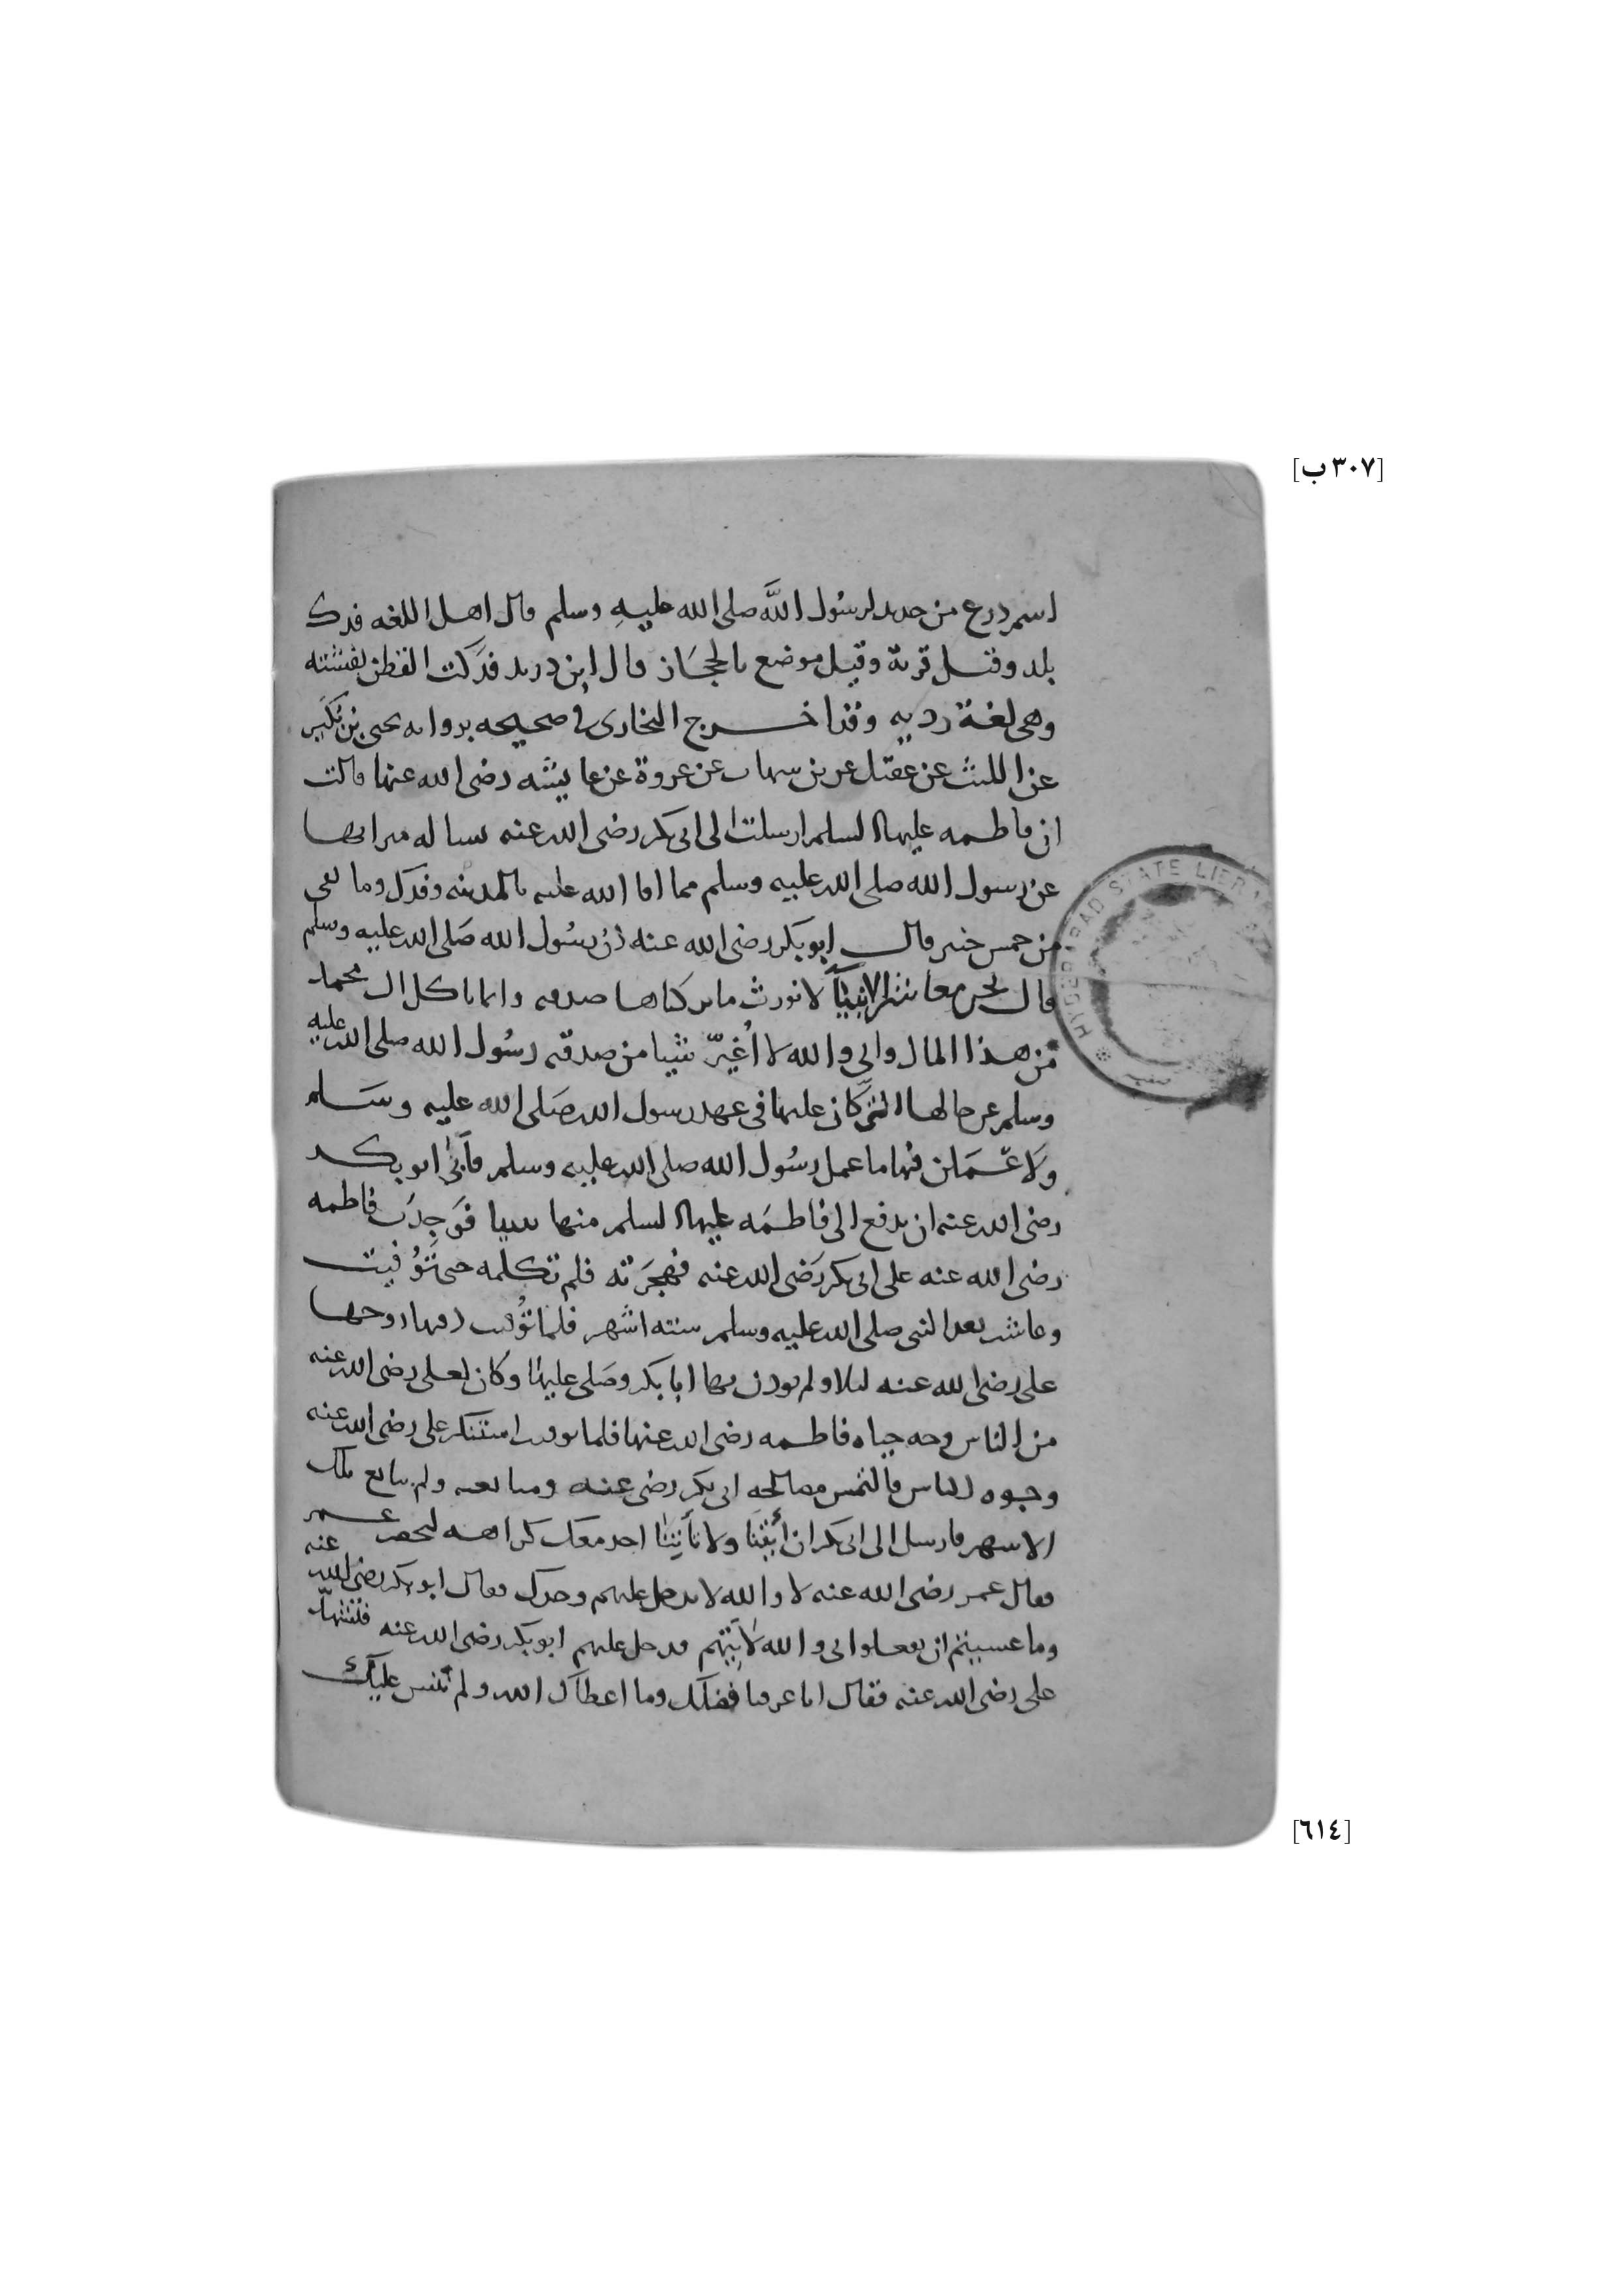 [٣٠٧ ب]
اسم درع من حديد لرسول اللَّه صلى الله عليهِ وسلم قال اهل اللغه فدك
بلد وقيل قرية وقيل موضع بالحجَاز قال ابن دريد فدَكت القطن نفشته
وهى لغة رديه وقد اخرج البخارى فى صحيحه بروايه يحيى بن بُكَير
عن الليث عن عقيل عن بن شهاب عن عروة عن عايشه رضى الله عنها قالت
ان فاطمه عليها السلم ارسلت الى ابى بكر رضى الله عنه تساله ميراثها
عن رسول الله صلى الله عليه وسلم مما افا الله عليه بالمدينه وفدك وما بقى
من خمس خيبر قال ابو بكر رضى الله عنه ان رسُول الله صَلى الله عليه وسلم
قال نحن معاشر الانبيآ لا نورث ما تركناها صدقه وانما ياكل ال محمد
من هذا المال وانى والله لا اُغيّر شيا من صدقه رسُول الله صلى الله عليه
وسلم عن حالها التى كان عليها فى عهد رسول الله صَلى الله عليه وسَلم
ولَا عْمَلن فيها ما عمل رسُول الله صلى الله عليه وسلم فأبىٰ ابو بكر
رضى الله عنه ان يدفع الى فاطمَه عليها السلم منها شيا فوَجِدَت فاطمه
رضى الله عنه على ابى بكر رَضى الله عنه فهجَرَته فلم تكلمه حتى تُوُفيت
وعاشت بعد النبى صلى الله عليه وسلم سته اشهر فلما تُوُفيت دفنها زوجها
على رضى الله عنه ليلا ولم يوذن بها ابا بكر وصَلى عليها وكان لعلى رضى الله عنه
من الناس وجه حياه فاطمه رضى الله عنها فلما توفيت استنكر على رضى الله عنه
وجوه الناس فالتمس مصالحه ابى بكر رضى عنه ومبايعته ولم يبايع تلك
الاشهر فارسل الى ابى بكر ان أئتِنا ولا يأتِينا احد معك كراهه ليحضر عمر
فقال عمر رضى الله عنه لا والله لا تدخل عليهم وحدك فقال ابو بكر رضى الله عنه
وما عسيتهم ان يفعلوا بى والله لآتِينهم فدخل عليهم ابو بكر رضى الله عنه فتشهدّ
على رضى الله عنه فقال انا عرفنا فضلك وما اعطاك الله ولم ننفس عليك
HYDERABAD STATE LIBRA
[٦١٤]